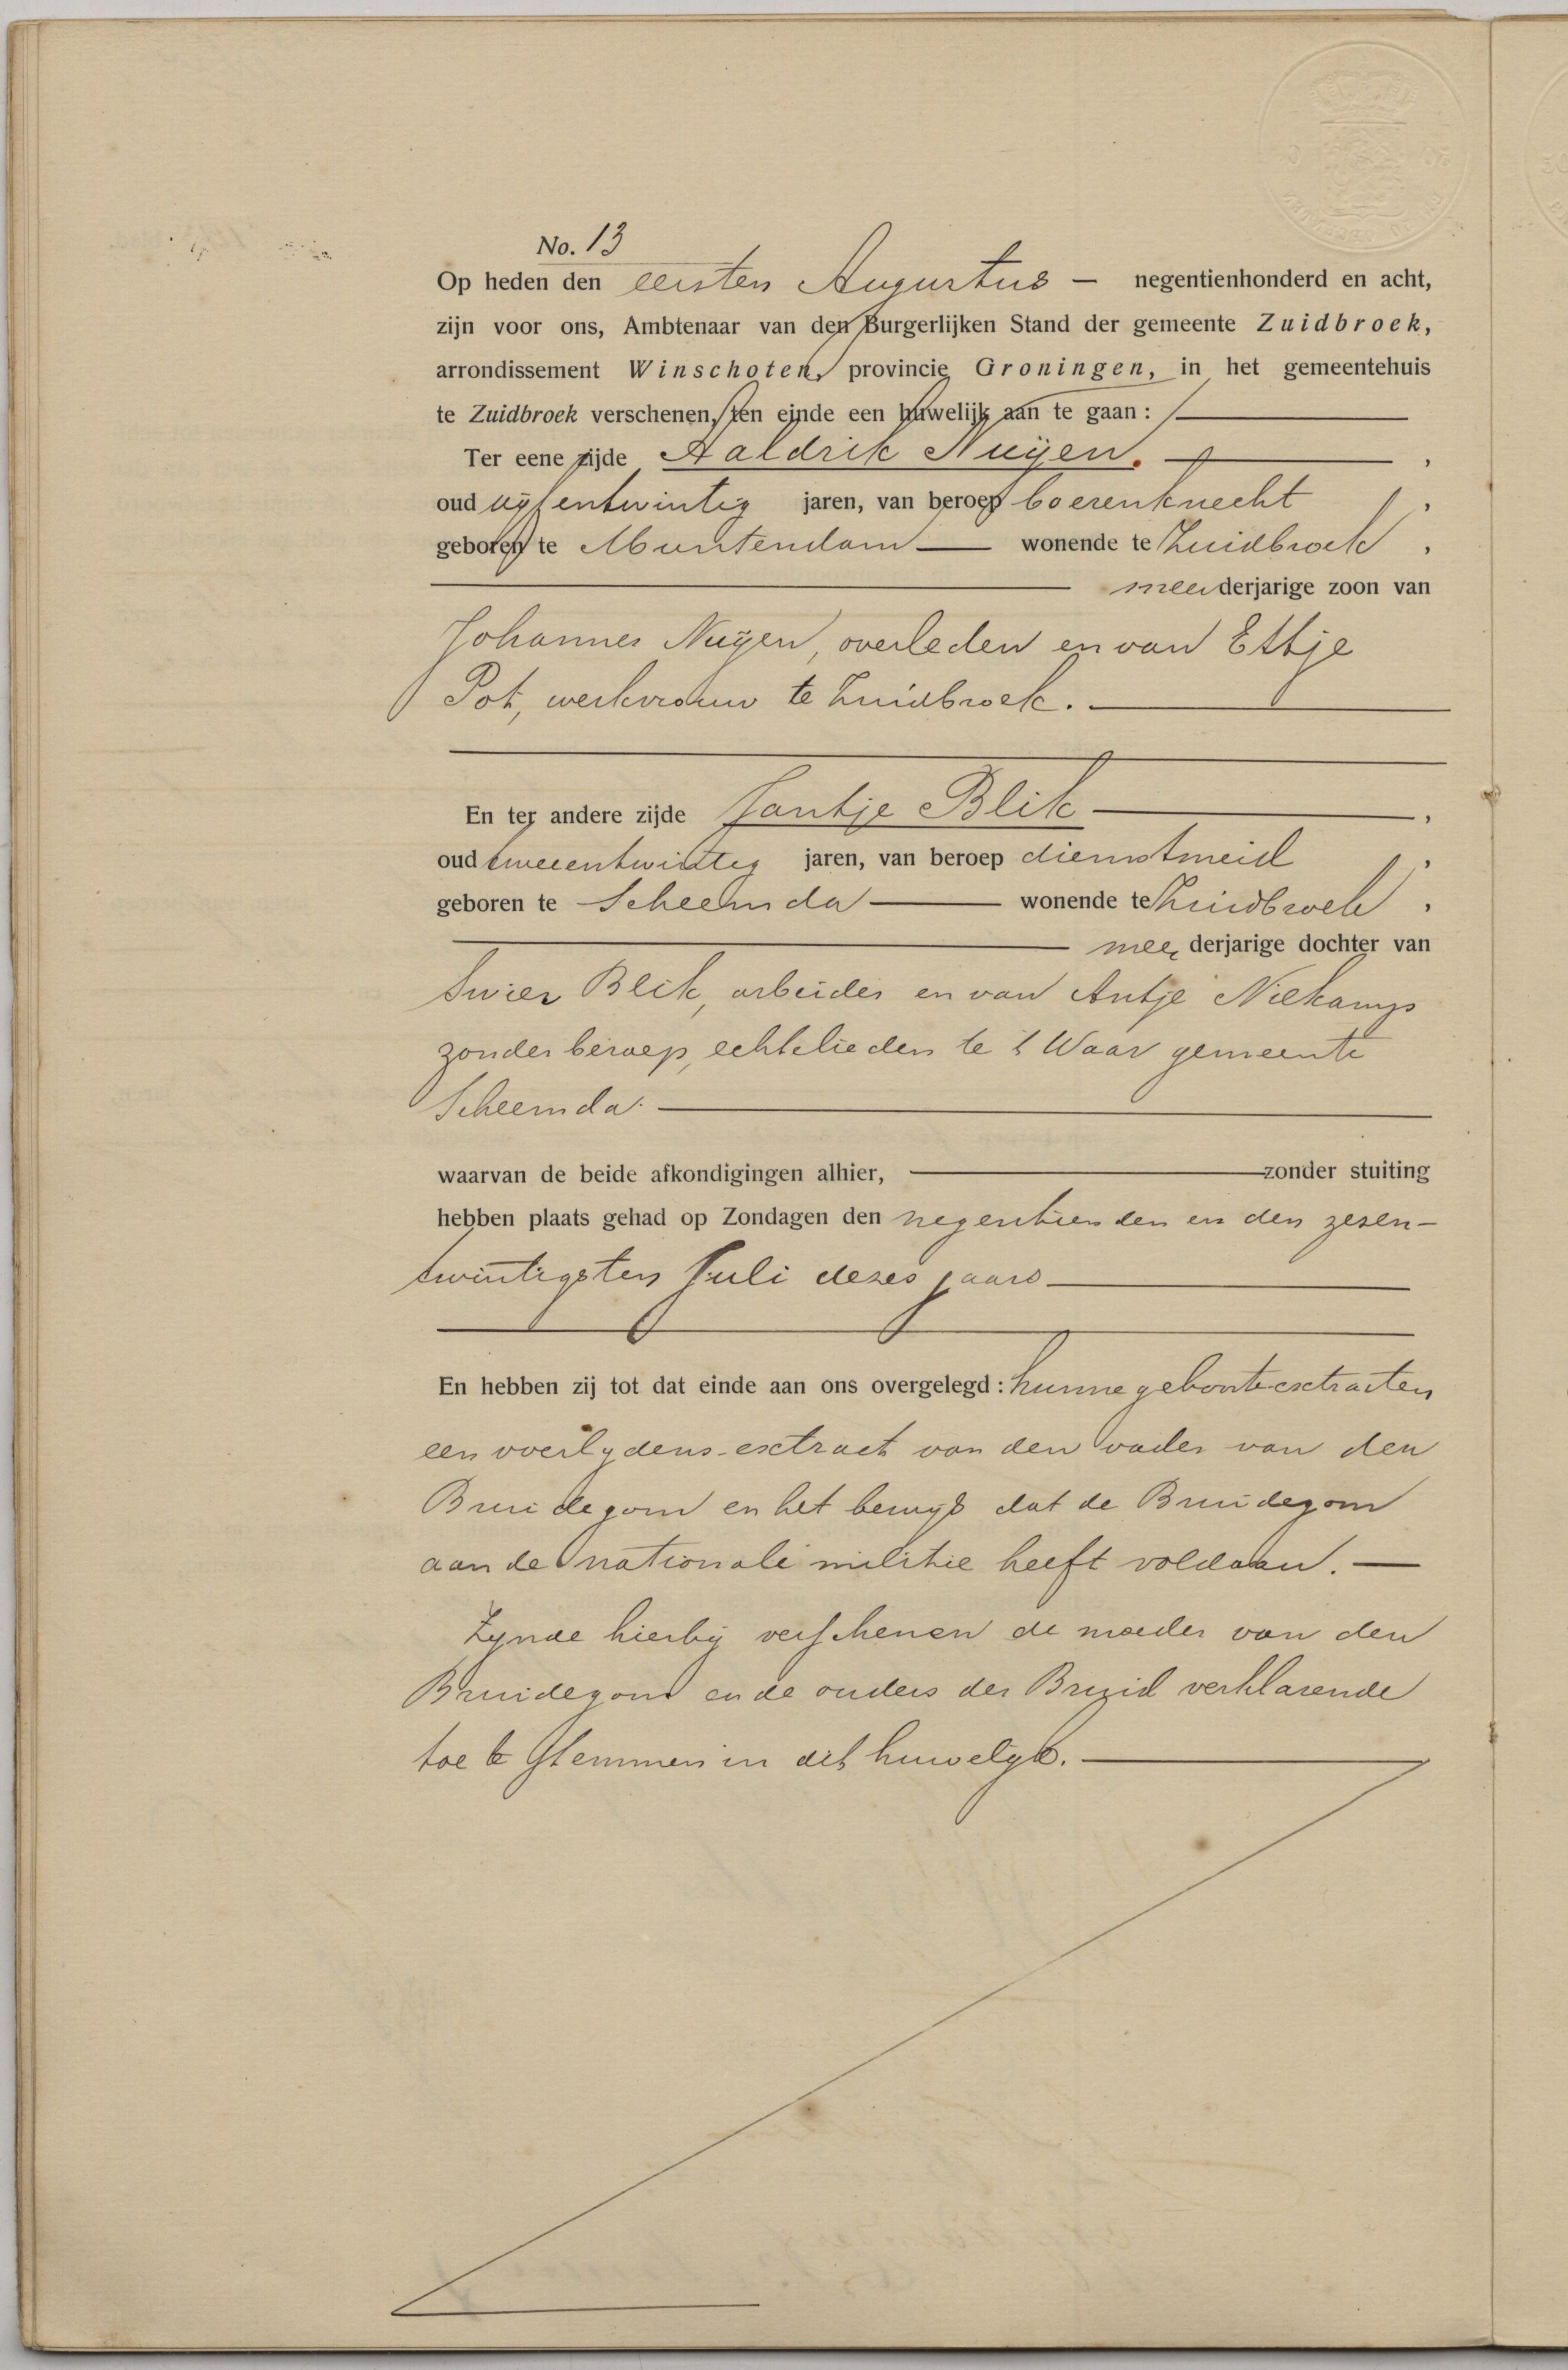 No. 13
Op heden den eersten Augustus — negentienhonderd en acht,
zijn voor ons, Ambtenaar van den Burgerlijken Stand der gemeente Zuidbroek,
arrondissement Winschoten, provincie Groningen, in het gemeentehuis
te Zuidbroek verschenen, ten einde een huwelijk aan te gaan:
Ter eene zijde Aaldrik Nuijen.
oud vijfentwintig jaren, van beroep boerenknecht,
geboren te Muntendam wonende te Zuidbroek,
meerderjarige zoon van
Johannes Nuijen, overleden en van Ettje
Pot, werkvrouw te Zuidbroek.
En ter andere zijde Jantje Blik,
oud tweeentwintig jaren, van beroep dienstmeid,
geboren te Scheemda wonende te Zuidbroek,
meerderjarige dochter van
Swier Blik, arbeider en van Antje Niekamp
zonder beroep, echtelieden te 't Waar gemeente
Scheemda.
waarvan de beide afkondigingen alhier, zonder stuiting
hebben plaats gehad op Zondagen den negentienden en den zesen-
twintigsten Juli dezes jaars
En hebben zij tot dat einde aan ons overgelegd: hunne geboorte-extracten
een overlijdens-extract van den vader van den
Bruidegom en het bewijs dat de Bruidegom
aan de nationale militie heeft voldaan. —
Zijnde hierbij verschenen de moeder van den
Bruidegom en de ouders der Bruid verklarende
toe te stemmen in dit huwelijk.